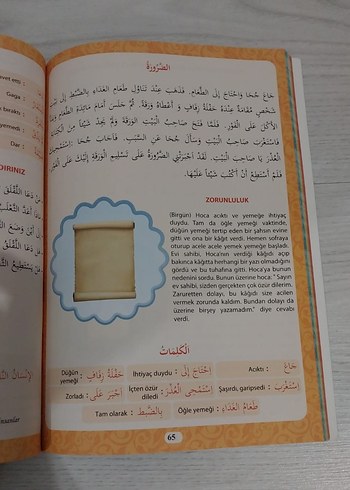 الضَّرُورَةُ
جَاعَ جُحَا وَاحْتَاجَ إِلَى الطَّعَامِ. فَذَهَبَ عِنْدَ تَنَاوُلِ طَعَامِ الغَدَاءِ بِالضَّبْطِ إِلَى بَيْتِ
شَخْصٍ مُقَامَةٌ عِنْدَهُ حَفْلَةُ زِفَافٍ وَ أَعْطَاهُ وَرَقَةً. ثُمَّ جَلَسَ أَمَامَ مَائِدَةِ الطَّعَامِ
الأَكْلَ عَلَى الْفَوْرِ. فَلَمَّا فَتَحَ صَاحِبُ الْبَيْتِ الْوَرَقَةَ وَلَمْ يَجِدْ شَيْئًا مِنَ الْكِتَابَةِ
فَاسْتَغْرَبَ صَاحِبُ الْبَيْتِ وَسَأَلَ جُحَا عَنِ السَّبَبِ. فَأَجَابَ جُحَا
الْعُذْرَ يَا صَاحِبَ الْبَيْتِ. لَقَدْ أَجْبَرَتْنِي الضَّرُورَةُ عَلَى تَسْلِيمِ الْوَرَقَةِ إِلَيْكَ عَلَى الْفَوْرِ
فَلَمْ أَسْتَطِعْ أَنْ أَكْتُبَ شَيْئًا عَلَيْهَا.
ZORUNLULUK
(Birgün) Hoca acıktı ve yemeğe ihtiyaç
duydu. Tam da öğle yemeği vaktinde,
düğün yemeği tertip eden bir şahsın evine
gitti ve ona bir kâğıt verdi. Hemen sofraya
oturup acele acele yenek yemeğe başladı.
Evi sahibi, Hoca'nın verdiği kâğıdı açıp
bakınca kâğıtta herhangi bir yazı olmadığını
gördü ve bu tuhafına gitti. Hoca'ya bunun
nedenini sordu. Bunun üzerine hoca: " Sayın
ev sahibi, sizden gerçekten çok özür dilerim.
Zaruretten dolayı, bu kâğıdı size acilen
vermek zorunda kaldım. Bundan dolayı da
üzerine birşey yazamadım." diye cevabı
verdi.
الْكَلِمَاتُ
Acıktı : جَاعَ
İhtiyaç duydu : اِحْتَاجَ إِلَى
Düğün yemeği : حَفْلَةُ زِفَافٍ
Şaşırdı, garipsedi : اِسْتَغْرَبَ
İçten özür diledi : اِسْتَمْحَى الْعُذْرَ
Zorladı : أَجْبَرَ عَلَى
Öğle yemeği : طَعَامُ الغَدَاءِ
Tam olarak : بِالضَّبْطِ
65